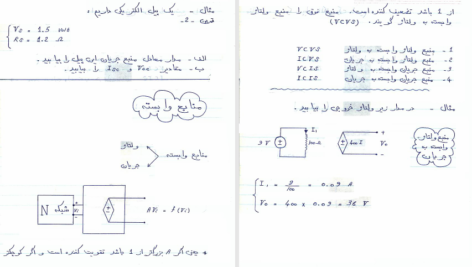 مثال - یک پیل الکتریکی داریم:
Vs = 1.5 volt
Rs = 1.2 Ω
الف- مدار معادل منبع جریان این پیل را بیابید.
ب- مقادیر Voc و Isc را بیابید.
منابع وابسته
منابع وابسته
ولتاژ
جریان
N
شبکه
Vi
AVi = f(Vi)
* یعنی اگر A بزرگتر از 1 باشد تقویت کننده است و اگر کوچکتر
از 1 باشد تضعیف کننده است. منبع فوق را منبع ولتاژ
وابسته به ولتاژ گویند. (VCVS)
1- منبع ولتاژ وابسته به ولتاژ VCVS
2- منبع ولتاژ وابسته به جریان ICVS
3- منبع جریان وابسته به ولتاژ VCIS
4- منبع جریان وابسته به جریان ICIS
مثال - در مدار زیر ولتاژ خروجی را بیابید.
منبع ولتاژ
وابسته به
جریان
9 V
I1
100 Ω
400 I
Vo
I1 = 9/100 = 0.09 A
Vo = 400 x 0.09 = 36 V